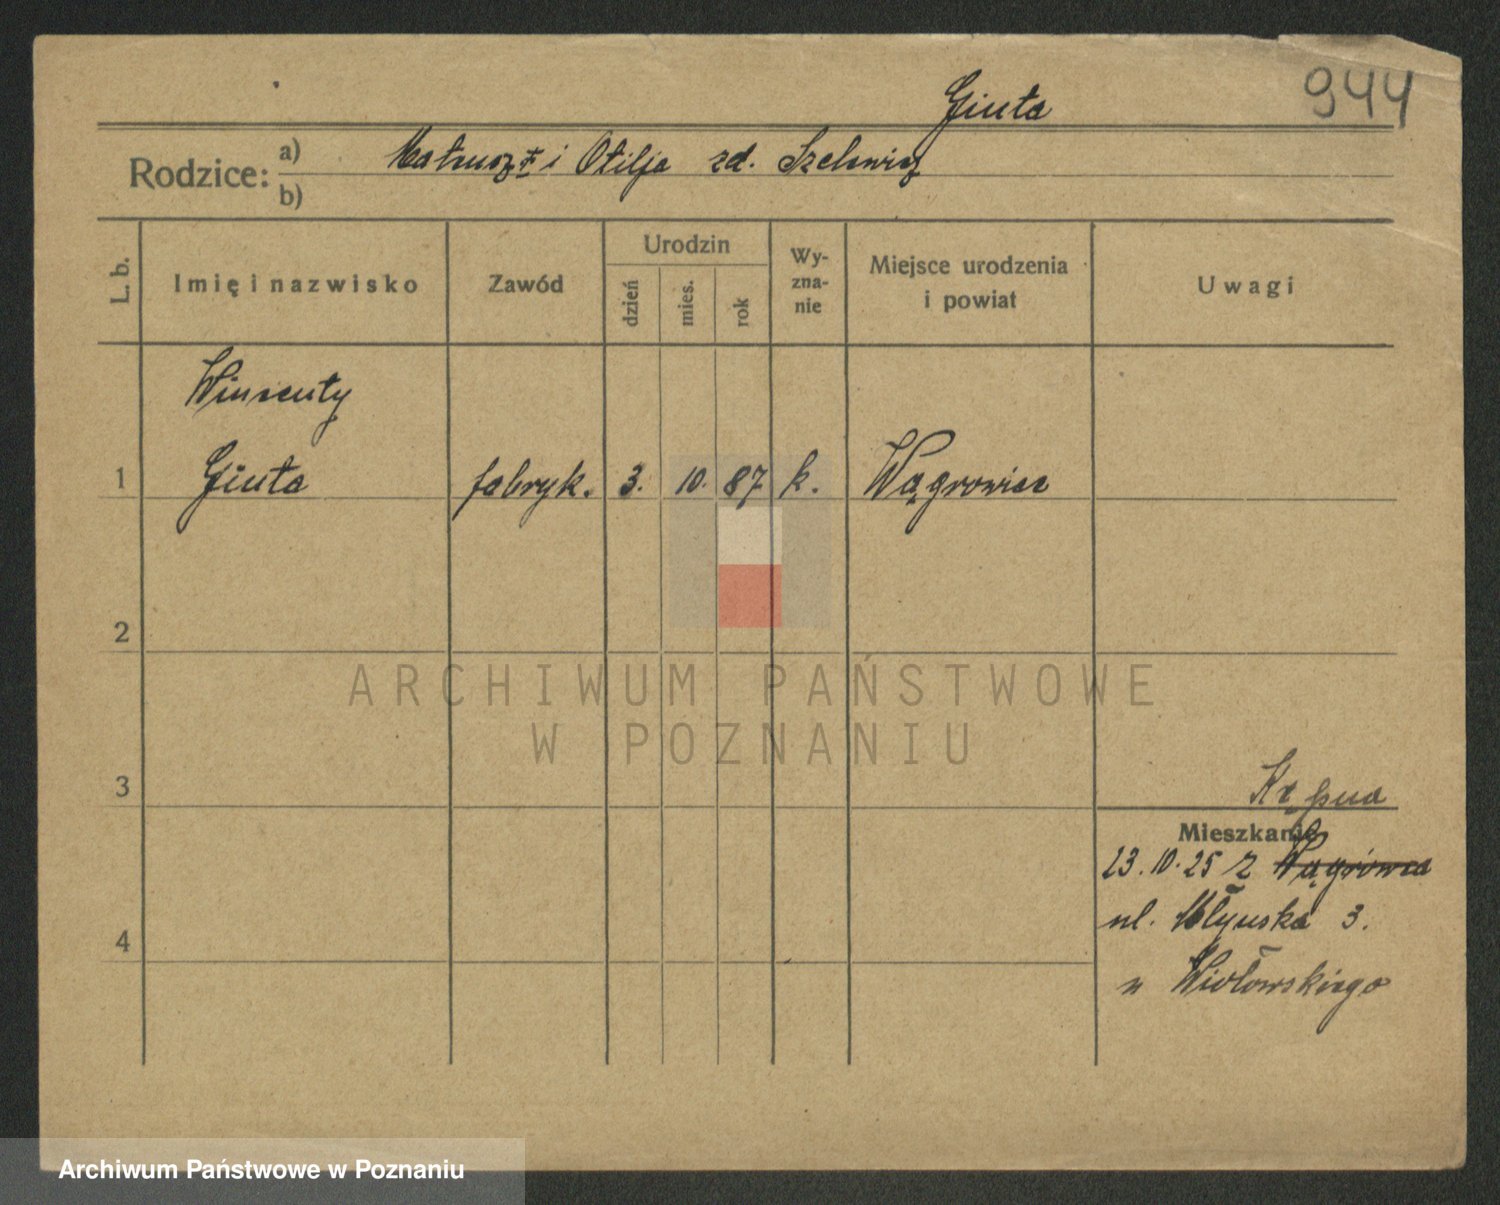 944
Giuta
Rodzice:
a) Mateusz † i Otilja zd.
b)
L. b.
Imię i nazwisko
Zawód
Urodzin
dzień
mies.
rok
Wy-
zna-
nie
Miejsce urodzenia
i powiat
Uwagi
Wincenty
1 Giuta fabryk. 3. 10. 87 k. Wągrowiec
2
ARCHIWUM PAŃSTWOWE
W POZNANIU
3
Kępna
Mieszkanie
23.10.25 z Wągrówca
ul. Młyńska 3.
u
4
Archiwum Państwowe w Poznaniu